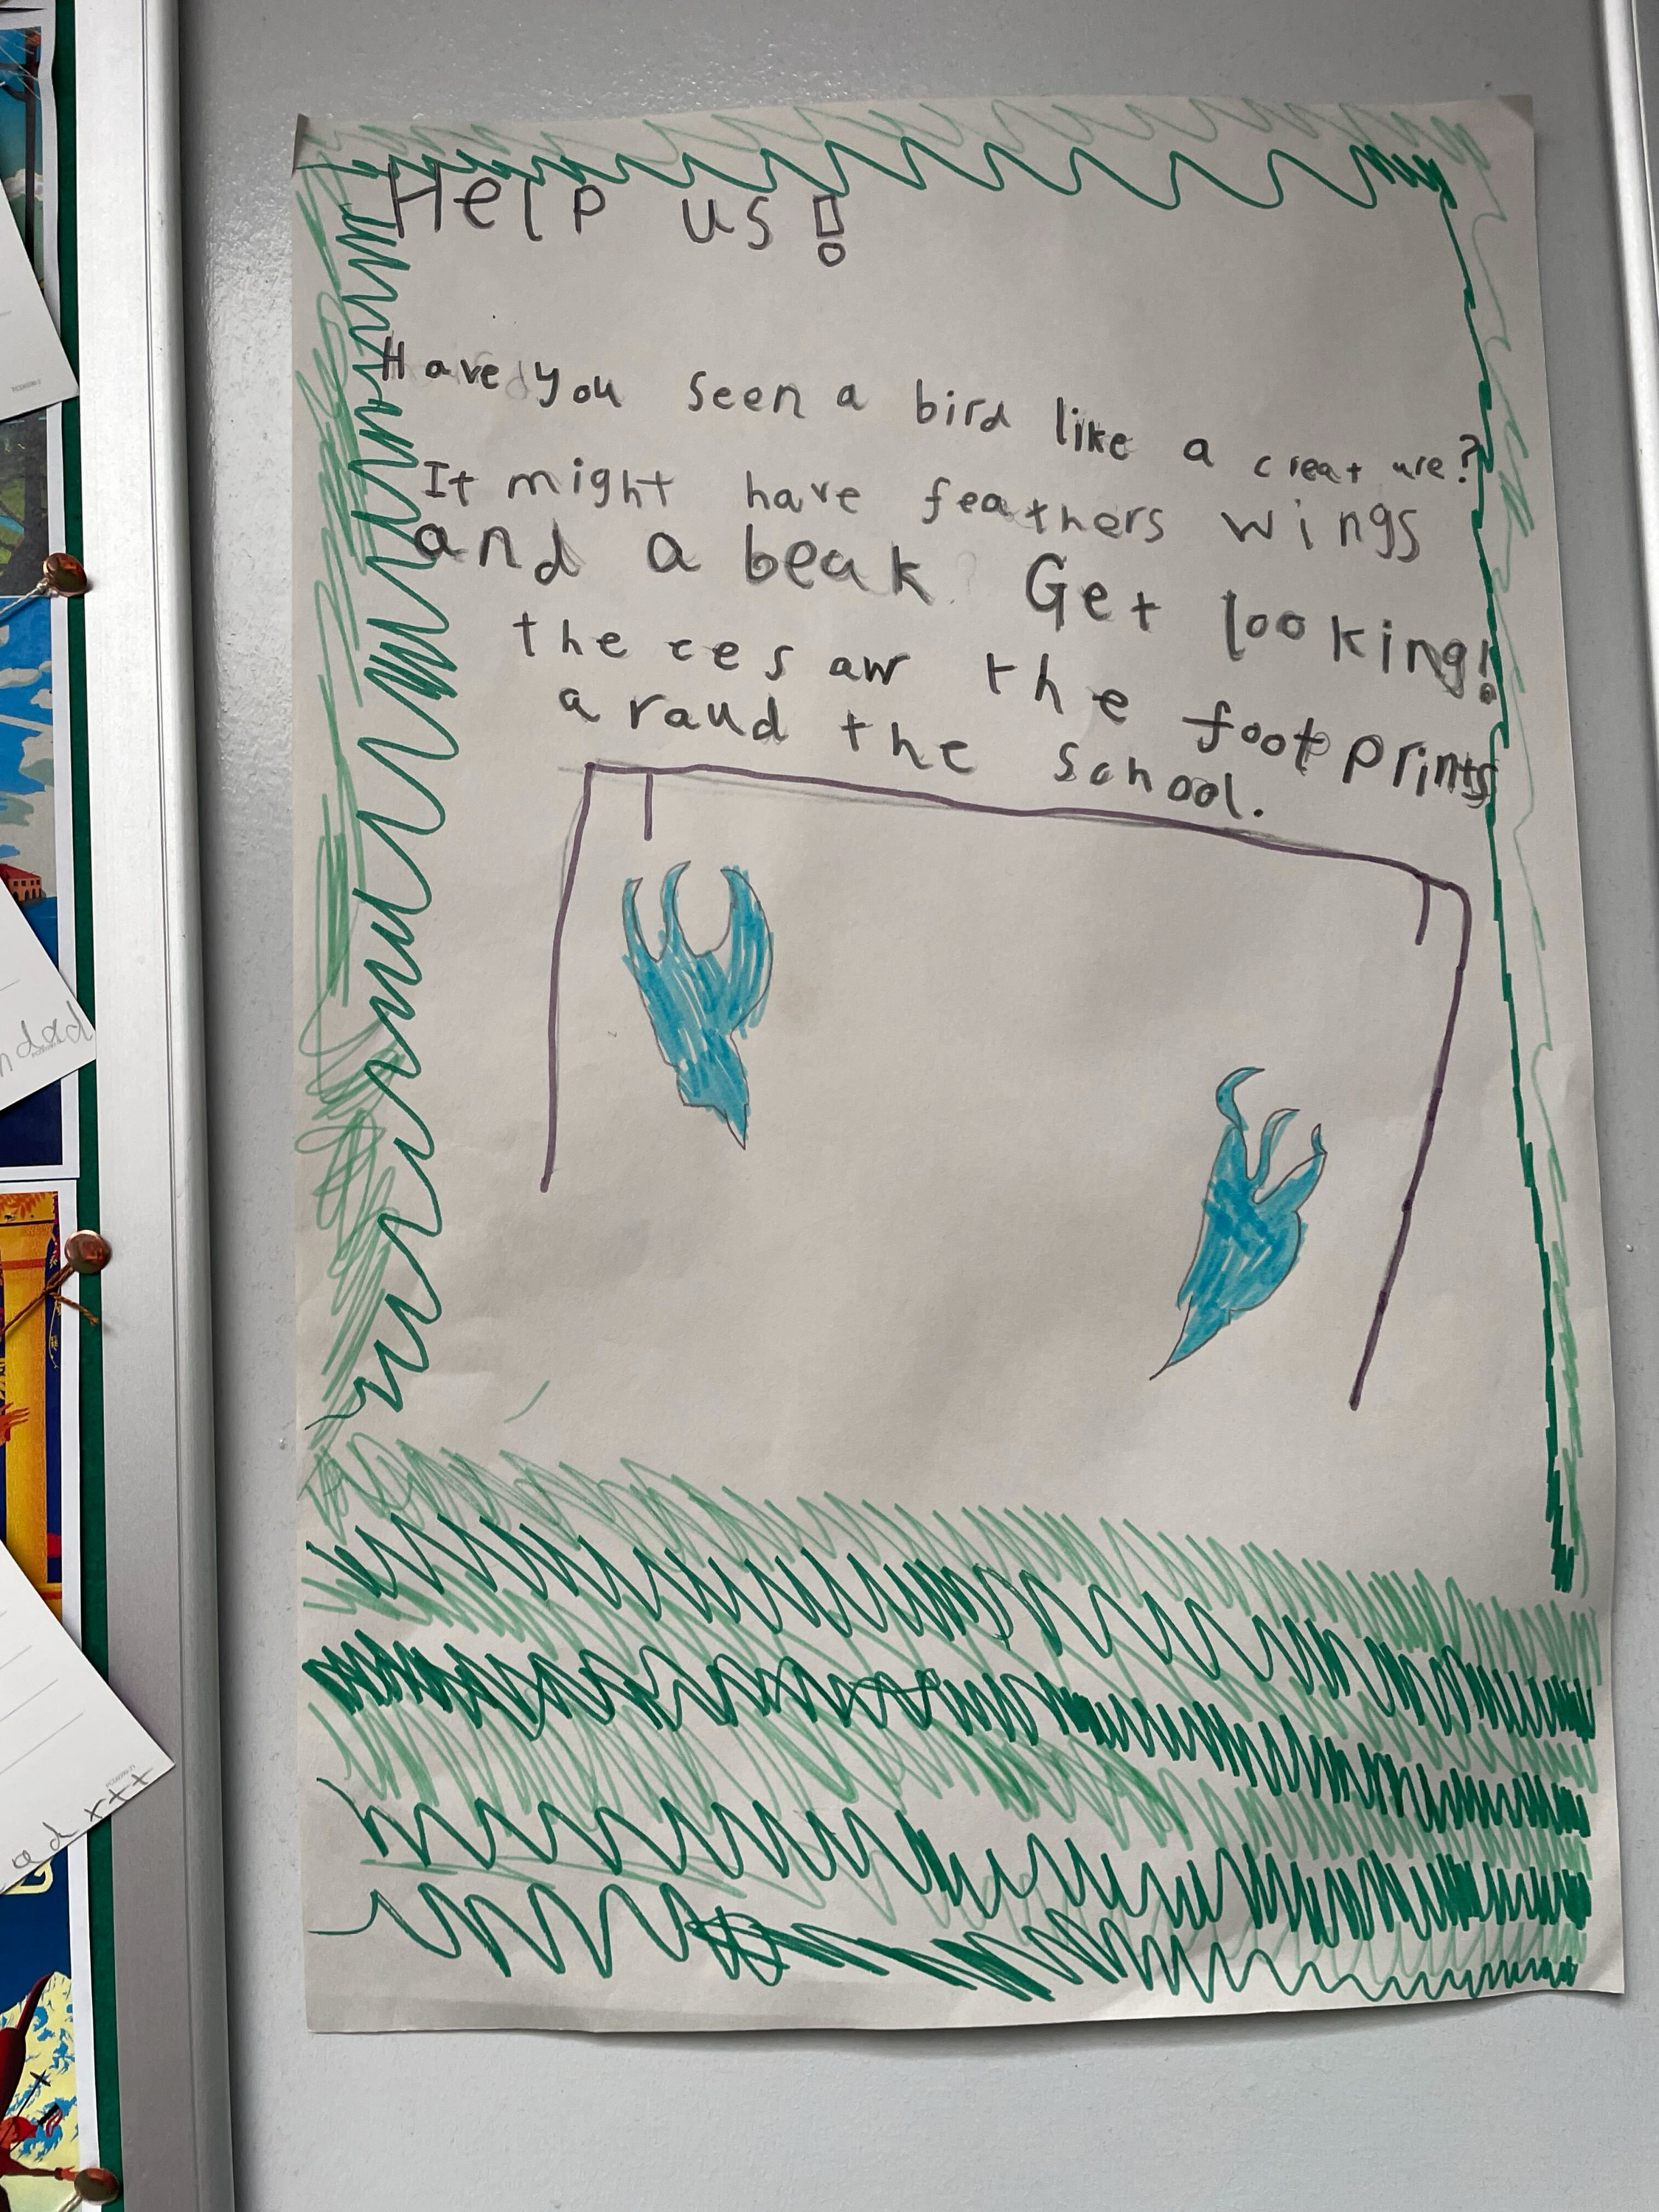 Help us!
Have you seen a bird like a creature?
It might have feathers wings
and a beak Get looking!
the ees aw the footprints
a raud the school.
dad
ad xtt